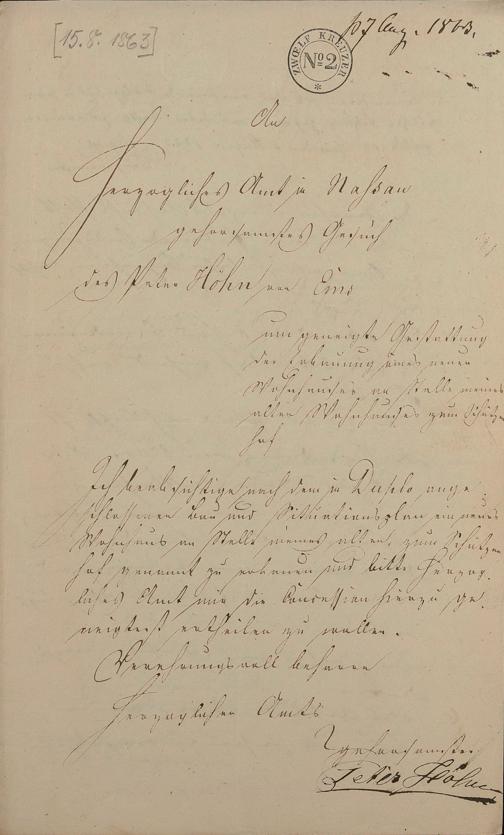 [15.8.1863]
17 Aug. 1863.
ZWOELF KREUZER
No 2
An
Herzogliches Amt in Nassau
gehorsamstes Gesuch
des Peter Höhn von Ems
um geneigte Gestattung
der Erbauung eines neuen
Wohnhauses an Stelle meines
alten Wohnhauses zum Schützen
hof
Ich beabsichtige nach dem in Duplo ange
schlossenen Bau und Situationsplan ein neues
Wohnhaus an Stelle meines alten, zum Schützen
hof genannt zu erbauen und bitte Herzog-
liches Amt mir die Concession hierzu ge-
neigtest ertheilen zu wollen.
Verehrungsvoll beharre
Herzoglichen Amts
gehorsamster
Peter Höhn